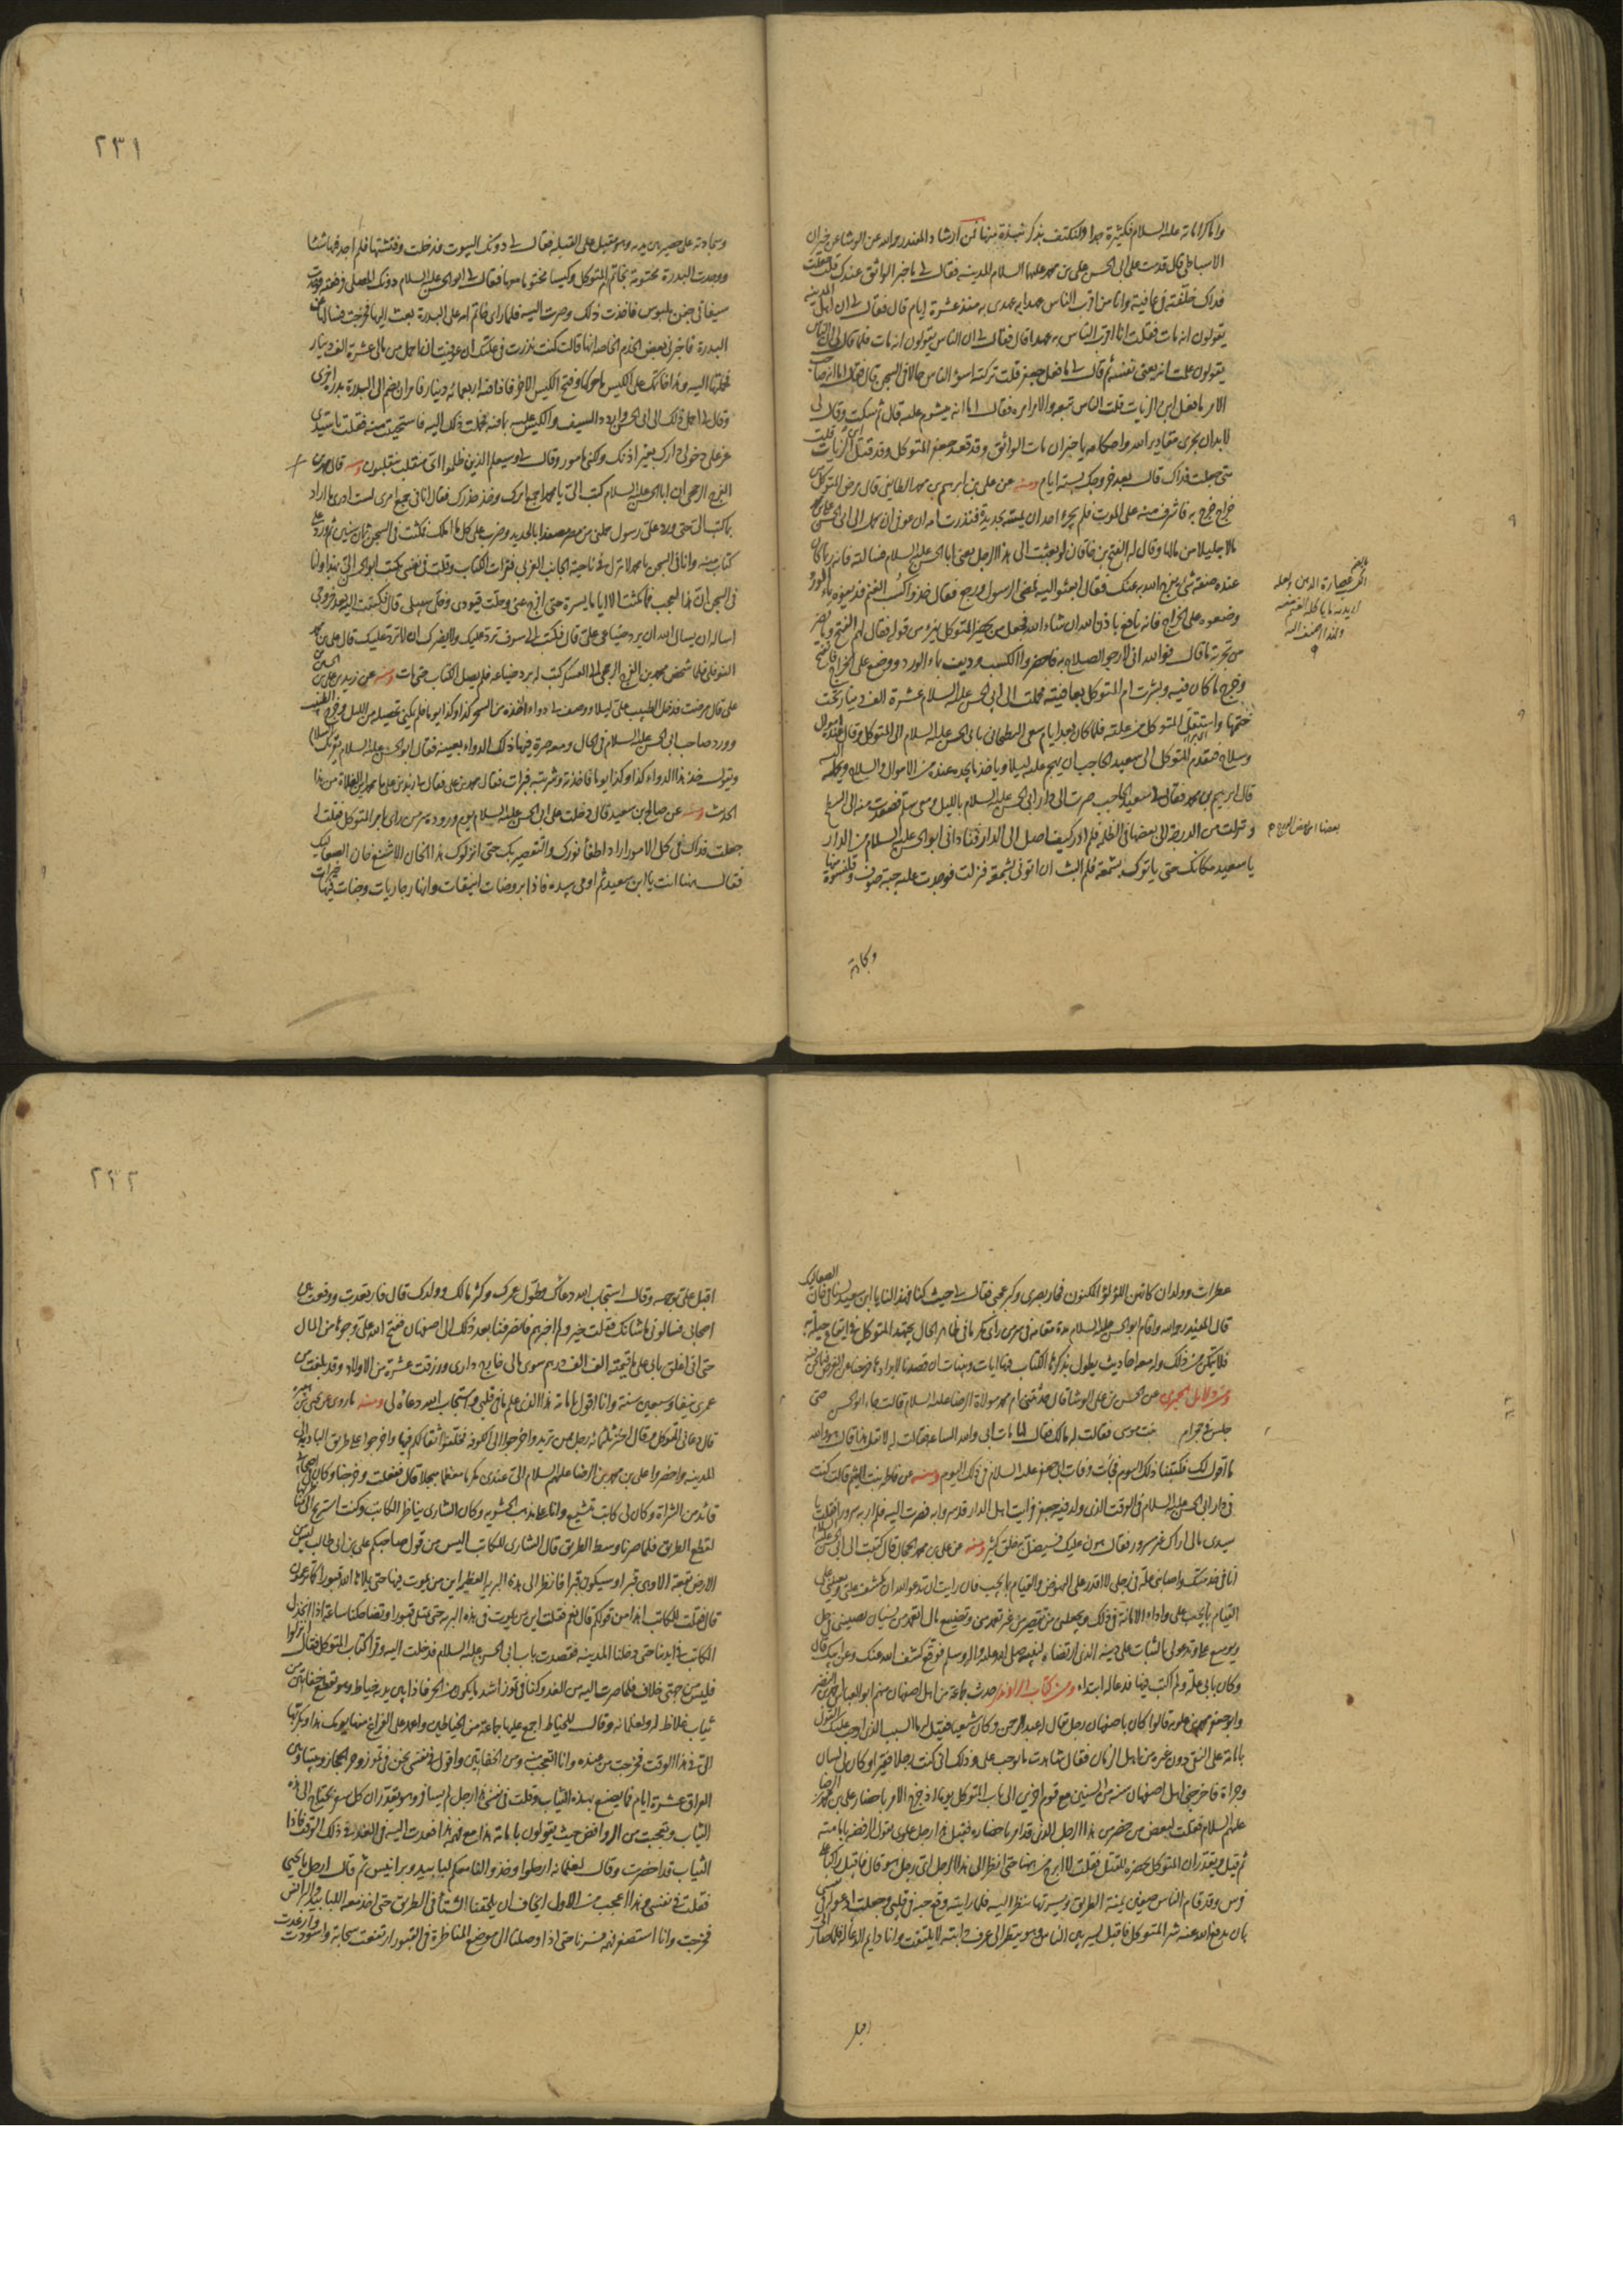 واما كراماته عليه السلام فكثيرة جدا ولنكتف بذكر نبذة منها فمن ارشاد المفيد رحمه الله عن الوشا عن خيران
الاسباطي قال قدمت على ابي الحسن علي بن محمد عليهما السلام المدينه فقال لي ما خبر الواثق عندك قلت جعلت
فداك خلفته في عافية وانا من اقرب الناس عهدا به عهدي به منذ عشرة ايام قال فقال لي ان اهل المدينه
يقولون انه مات فقلت انا اقرب الناس به عهدا قال فقال لي ان الناس يقولون انه مات فلما قال لي ان الناس
يقولون علمت انه يعني نفسه ثم قال لي ما فعل جعفر قلت تركته اسوء الناس حالا في السجن قال فقال اما انه صاحب
الامر ما فعل ابن الزيات قلت الناس معه والامر امره فقال اما انه ميشوم عليه قال ثم سكت وقال لي
لابد ان يجرى مقادير الله واحكامه يا خيران مات الواثق وقد قعد جعفر المتوكل وقد قتل ابن الزيات قلت
متى جعلت فداك قال بعد خروجك بستة ايام ومنه عن علي بن ابرهيم بن محمد الطايفي قال مرض المتوكل من
خراج خرج به فاشرف منه على الموت فلم يجرء احد ان يمسه بحديدة فنذرت امه ان عوفي ان يحمل الى ابي الحسن علي بن محمد
مالا جليلا من مالها وقال له الفتح بن خاقان لو بعثت الى هذا الرجل يعني ابا الحسن عليه السلام فسالته فانه ربما كان
عنده صفة شئ يفرج الله به عنك فقال ابعثوا اليه فمضى الرسول ورجع فقال خذوا كسب الغنم فديفوه بماء الورد
وضعوه على الخراج فانه نافع باذن الله ان شاء الله فجعل من يحضر المتوكل يهزء من قوله فقال لهم الفتح وما يضر
من تجربة ما قال فوالله اني لارجو الصلاح به فاحضروا الكسب وديف بماء الورد ووضع على الخراج فانفتح
وخرج ما كان فيه وبشرت ام المتوكل بعافيته فحملت الى ابي الحسن عليه السلام عشرة الف دينار تحت
ختمها واستقل المتوكل من علته فلما كان بعد ايام سعى البطحاني بابي الحسن عليه السلام الى المتوكل وقال عنده اموال
وسلاح فتقدم المتوكل الى سعيد الحاجب ان يهجم عليه ليلا وياخذ ما يجده عنده من الاموال والسلاح ويحمله اليه
قال ابرهيم بن محمد فقال لي سعيد الحاجب صرت الى دار ابي الحسن عليه السلام بالليل ومعي سلم فصعدت منه الى السطح
ونزلت من الدرجة الى بعضها في الظلمة فلم ادر كيف اصل الى الدار فناداني ابو الحسن عليه السلام من الدار
يا سعيد مكانك حتى ياتوك بشمعة فلم البث ان اتوني بشمعة فنزلت فوجدت عليه جبة صوف وقلنسوة منها
وسجادته
٢٣١
وسجادته على حصير بين يديه وهو مقبل على القبلة فقال لي دونك البيوت فدخلت وفتشتها فلم اجد فيها شئا
ووجدت البدرة مختومة بخاتم ام المتوكل وكيسا مختوما معها فقال لي ابو الحسن عليه السلام دونك المصلى فرفعته فوجدت
سيفا في جفن ملبوس فاخذت ذلك وصرت اليه فلما راى خاتم امه على البدرة بعث اليها فخرجت فسالها عن
البدرة فاخبرني بعض الخدم الخاصة انها قالت كنت نذرت في علتك ان عوفيت ان احمل من مالي عشرة الف دينار
فحملتها اليه وهذا خاتمك على الكيس ما حركها وفتح الكيس الاخر فاذا فيه اربعمائه دينار فامر ان يضم الى البدرة بدرة اخرى
وقال لي احمل ذلك الى ابي الحسن واردد السيف والكيس عليه بما فيه فحملت ذلك اليه فاستحييت منه فقلت يا سيدي
عز علي دخولي دارك بغير اذنك ولكني مامور وقال لي وسيعلم الذين ظلموا اي منقلب ينقلبون ومنه قال محمد بن
الفرج الرخجي ان ابا الحسن عليه السلام كتب الي يا محمد اجمع امرك وخذ حذرك فقال انا في جمع امري لست ادري ما اراد
بما كتب الي حتى ورد علي رسول حملني من مصر مصفدا بالحديد وضرب على كل ما املك فمكثت في السجن ثمان سنين ثم ورد علي
كتاب منه وانا في السجن يا محمد لا تنزل في ناحية الجانب الغربي فقرات الكتاب وقلت في نفسي يكتب ابو الحسن الي بهذا وانا
في السجن ان هذا لعجب فما مكثت الا اياما يسيرة حتى افرج عني وحلت قيودي وخلى سبيلي قال فكتبت اليه بعد خروجي
اساله ان يسال الله ان يرد ضياعي علي قال فكتب الي سوف ترد عليك وما يضرك ان لا ترد عليك قال علي بن محمد
النوفلي فلما شخص محمد بن الفرج الرخجي الى العسكر كتب له برد ضياعه فلم يصل الكتاب حتى مات ومنه عن زيد بن علي بن الحسين بن
علي قال مرضت فدخل الطبيب علي ليلا ووصف لي دواء اخذه من السحر كذا وكذا يوما فلم يمكني تحصيله من الليل وخرج الطبيب
وورد صاحب ابي الحسن عليه السلام في الحال ومعه صرة فيها ذلك الدواء بعينه فقال ابو الحسن عليه السلام يقرئك السلام
ويقول خذ هذا الدواء كذا وكذا يوما فاخذته وشربته فبرات فقال محمد بن علي فقال لي زيد بن علي يا محمد اين الغلاة من هذا
الحديث ومنه عن صالح بن سعيد قال دخلت على ابي الحسن عليه السلام يوم وروده سر من راى بامر المتوكل فقلت له
جعلت فداك في كل الامور ارادوا اطفأ نورك والتقصير بك حتى انزلوك هذا الخان الاشنع خان الصعاليك
فقال ههنا انت يا ابن سعيد ثم اومى بيده فاذا بروضات انيقات وانهار جاريات وجنات فيها خيرات
٢٣٢
عطرات وولدان كانهن اللؤلؤ المكنون فحار بصري وكثر عجبي فقال لي حيث كنا فهذا لنا يا ابن سعيد لسنا في خان الصعاليك
قال المفيد رحمه الله واقام ابو الحسن عليه السلام مدة مقامه في سر من راى مكرما في ظاهر الحال يجتهد المتوكل في ايقاع حيلة به
ومن دلائل الحميري عن الحسن بن علي الوشا قال حدثتني ام محمد مولاة الرضا عليه السلام قالت جاء ابو الحسن حتى
جلس في حجر ام بنت موسى فقالت له مالك فقال لها مات ابي والله الساعة فقالت له لا تقل هذا قال هو والله
ما اقول لك فكتبنا ذلك اليوم فجاءت وفات ابي جعفر عليه السلام في ذلك اليوم ومنه عن فاطمة بنت الهيثم قالت كنت
في دار ابي الحسن عليه السلام في الوقت الذي ولد فيه جعفر فرايت اهل الدار قد سروا به فصرت اليه فلم اره به سرورا فقلت يا
سيدي مالي اراك غير مسرور فقال هون عليك فسيضل به خلق كثير ومنه عن علي بن محمد الحجال قال كتبت الى ابي الحسن عليه السلام
انا في خدمتك واصابني علة في رجلي لا اقدر على النهوض والقيام بما يجب فان رايت ان تدعو الله ان يكشف علتي ويعينني على
القيام بما يجب علي واداء الامانة في ذلك ويجعلني من تقصيري من غير تعمد مني وتضييع مال اتعمده من نسيان يصيبني في حل
ويوسع علي وتدعو لي بالثبات على دينه الذي ارتضاه لنبيه صلى الله عليه واله وسلم فوقع كشف الله عنك وعن ابيك قال
وكان بابي علة ولم اكتب فيها فدعا له ابتداء ومن كتاب الراوندي حدث جماعة من اهل اصفهان منهم ابو العباس احمد بن النضر
وابو جعفر محمد بن علويه قالوا كان باصفهان رجل يقال له عبد الرحمن وكان شيعيا فقيل له ما السبب الذي اوجب عليك القول
بامامة علي النقي دون غيره من اهل الزمان فقال شاهدت ما يوجب علي وذلك اني كنت رجلا فقيرا وكان لي لسان
وجراة فاخرجني اهل اصفهان سنة من السنين مع قوم اخرين الى باب المتوكل يوما اذ خرج الامر باحضار علي بن محمد بن الرضا
عليهم السلام فقلت لبعض من حضر من هذا الرجل الذي قد امر باحضاره فقيل هذا رجل علوي يقول الرافضة بامامته
ثم قيل ويقدر ان المتوكل يحضره للقتل فقلت لا ابرح من ههنا حتى انظر الى هذا الرجل اي رجل هو قال فاقبل راكبا على
فرس وقد قام الناس صفين يمنة الطريق ويسرتها ينظر اليه فلما رايته وقع حبه في قلبي وجعلت ادعو له في نفسي
بان يدفع الله عنه شر المتوكل فاقبل يسير بين الناس وهو ينظر الى عرف دابته لا يلتفت وانا دايم الدعاء له فلما صار الي
اقبل
اقبل علي بوجهه وقال استجاب الله دعاك وطول عمرك وكثر مالك وولدك قال فارتعدت ووقعت بين
اصحابي فسالوني ما شانك فقلت خير ولم اخبرهم فانصرفنا بعد ذلك الى اصفهان ففتح الله علي وجوها من المال
حتى اني اغلق بابي على ما قيمته الف الف درهم سوى مالي خارج داري ورزقت عشرة من الاولاد وقد بلغت من
عمري نيفا وسبعين سنة وانا اقول بامامة هذا الذي علم ما في قلبي واستجاب الله دعاءه لي ومنه ما روى عن يحيى بن هرثمة
قال دعاني المتوكل وقال اختر ثلثمائة رجل ممن تريد واخرجوا الى الكوفة فخلفوا اثقالكم فيها واخرجوا على طريق البادية الى
المدينة واحضروا علي بن محمد بن الرضا عليهم السلام الى عندي مكرما معظما مبجلا قال ففعلت وخرجنا وكان في اصحابي
قائد من الشراة وكان لي كاتب يتشيع وانا على مذهب الحشوية وكان الشاري يناظر الكاتب وكنت استريح الى مناظرتهما
لقطع الطريق فلما صرنا وسط الطريق قال الشاري للكاتب اليس من قول صاحبكم علي بن ابي طالب ليس من
الارض بقعة الا وهي قبر او سيكون قبرا فانظر الى هذه البرية العظيمة اين من يموت فيها حتى يملاها الله قبورا كما تزعمون
قال فقلت للكاتب اهذا من قولكم قال نعم فقلت اين من يموت في هذه البرية حتى تمتلي قبورا وتضاحكنا ساعة اذا انخذل
الكاتب في ايدينا حتى دخلنا المدينة فقصدت باب ابي الحسن عليه السلام فدخلت اليه وقرا كتاب المتوكل فقال انزلوا
فليس من جهتي خلاف فلما صرت اليه من الغد وكنا في تموز اشد ما يكون من الحر فاذا بين يديه خياط وهو يقطع من خفاتين
ثياب غلاظ له ولغلمانه وقال للخياط اجمع عليها جماعة من الخياطين واعمد على الفراغ منها يومك هذا وبكر بها
الي في هذا الوقت فخرجت من عنده وانا اتعجب منه ومن الخفاتين واقول في نفسي نحن في تموز وحر الحجاز وبيننا وبين
العراق عشرة ايام فما يصنع بهذه الثياب وقلت في نفسي هذا رجل لم يسافر وهو يقدر ان كل سفر يحتاج الى هذه
الثياب وتعجبت من الروافض حيث يقولون بامامة هذا مع فهمه هذا فعدت اليه في الغد في ذلك الوقت فاذا
الثياب قد احضرت وقال لغلمانه ارحلوا وخذوا لنا معكم لبابيد وبرانيس ثم قال ارحل يا يحيى
فقلت في نفسي وهذا اعجب من الاول ايخاف ان يلحقنا الشتاء في الطريق حتى اخذ معه اللبابيد والبرانس
فخرجت وانا استصغر فهمه فسرنا حتى اذا وصلنا الى موضع المناظرة في القبور ارتفعت سحابة واسودت وارعدت